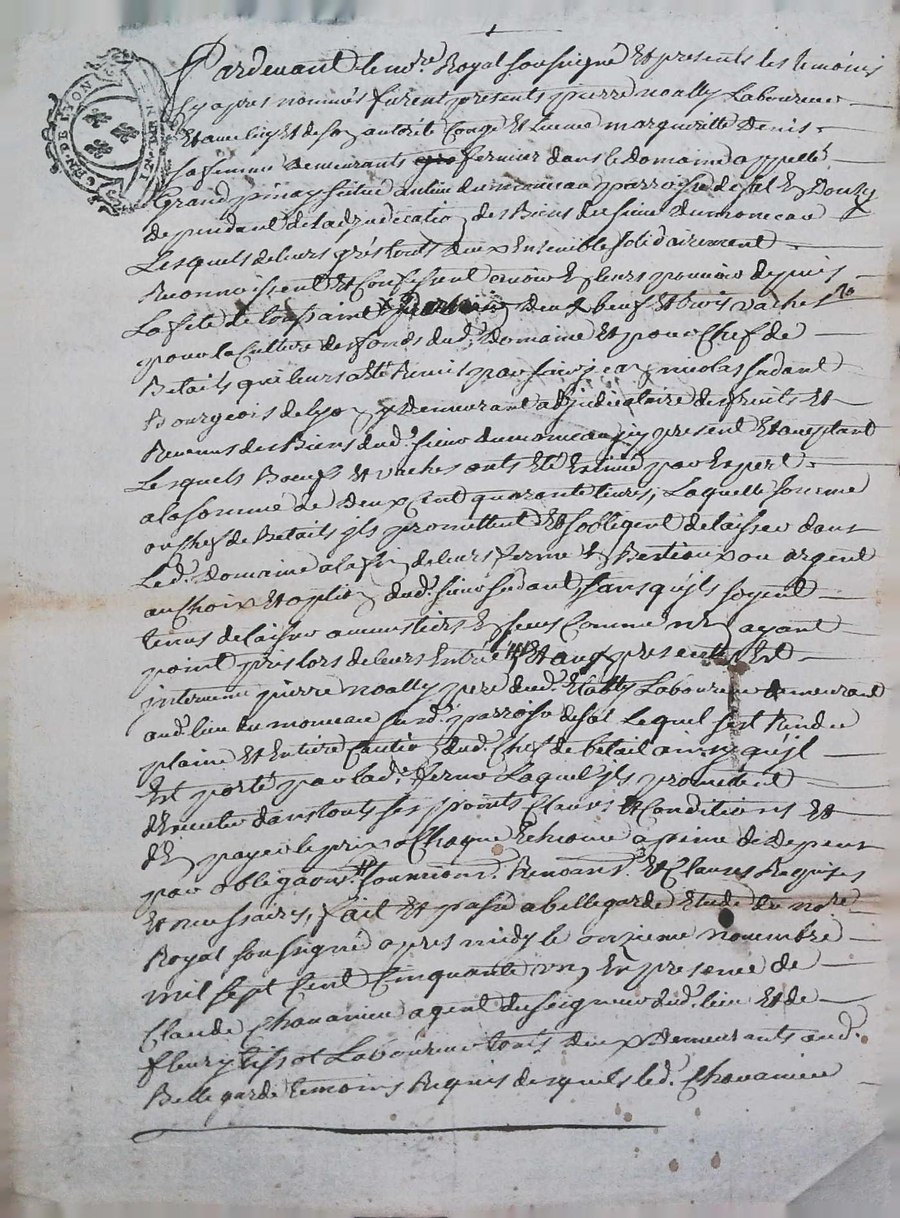 GEN. DE LYON
Pardevant le no.re Royal soussigné Et presents les temoins
Cy apres nommés furent presents pierre noally Laboureur
Et de son autorité Congé Et Licence margueritte Denis
sa femme Demeurants fermier dans le Domaine appellé
Grand pinay situé au lieu du monceau parroisse de st Et Donzy
dependant de Ladjudication des Biens du sieur Dumonceau
Lesquels de leurs grés touts deux Ensemble solidairement
Reconnoissent Et Confessent avoir En leurs pouvoir depuis
La fete de toussaint deux beufs Et trois vaches
pour la Culture des fonds dud. Domaine Et pour Chef de
Betails qui leurs a Eté Remis par sieur jean nicolas fudant
Bourgeois de lyon y Demeurant adjudicataire des fruits Et
Revenus des Biens dud. sieur dumonceau jcy present Et aceptant
Lesquels Boeufs Et vaches onts Eté Estimé par Expert
a la somme de Deux Cent quarante livres, Laquelle somme
ou Chef de Betails jls promettent Et sobligent de laisser dans
Led. Domaine a la fin de leurs ferme En Bestiaux ou argent
au Choix Et option dud. sieur fudant sans quils soyent
tenus de laisser aucuns Comme nen ayant
point pris lors de leurs Entrée Et aux presentes Est
intervenu pierre noally pere dud. noally Laboureur demeurant
aud. lieu du monceau susd. parroisse de st lequel sest Rendu
plaine Et Entiere Caution dud. Chef de betail ainsy quil
Est porté par lad. ferme Laquel jls promettent
dExecuter dans touts ses points Clauses Et Conditions Et
dEn payer le prix a Chaque Echeance a peine de Depens
par obligaons. soumions. Renoans. Et Clauses Requises
Et necessaires, fait Et passé a bellegarde Etude du no.re
Royal soussigné apres midy le onzieme novembre
mil sept Cent Cinquante un, En presence de
Claude Chavanieu agent du seigneur dud. lieu Et de
fleury tissot Laboureur touts deux Demeurants aud.
Bellegarde temoins Requis desquels led. Chavanieu